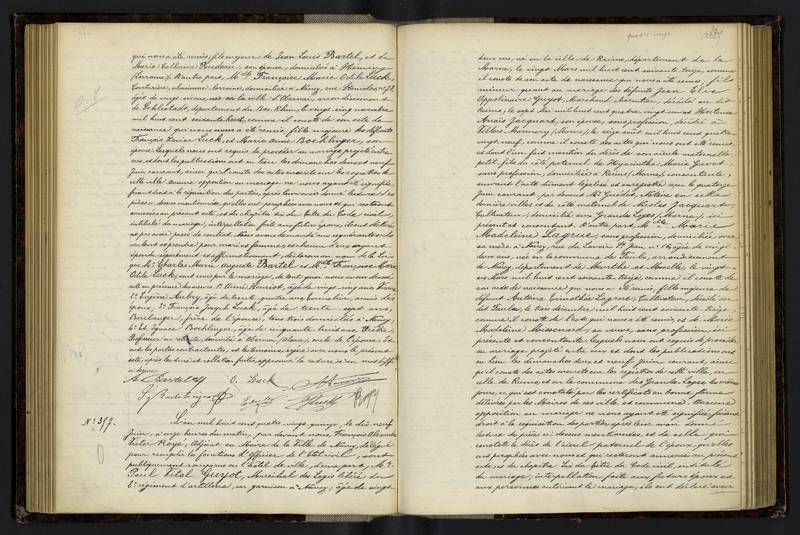 qui nous a été remis, fils majeur de Jean Louis Bartel, et de
Marie Catherine Rondeau, son épouse, domiciliés à Héming
(Lorraine). D'autre part, Mlle Françoise Marie Odile Luck,
Couturière, alsacienne-lorraine, domiciliée à Nancy, rue Stanislas
âgée de vingt six ans, née en la ville d'Obernai, arrondissement
de Schlestadt, département du Bas Rhin, le vingt cinq novembre
mil huit cent soixante huit, comme il conste de son acte de
naissance qui nous a été remis, fille majeure des défunts
François Xavier Luck, et Marie Anne Boehlinger, son
épouse. Lesquels nous ont requis de procéder au mariage projeté entre
eux, et dont les publications ont eu lieu les dimanches deux et neuf
Juin courant, ainsi qu'il conste des actes inscrits sur les registres de
cette ville. Aucune opposition au mariage ne nous ayant été signifiée,
faisant droit à la réquisition des parties, après leur avoir donné lecture des
pièces ci-dessus mentionnées, qu'elles ont paraphées avec nous et qui resteront
annexées au présent acte, et du chapitre six du Titre du Code civil,
intitulé du mariage, interpellation faite aux futurs époux,
ont déclaré
répondu séparément et affirmativement, déclarons au nom de la Loi
que Mr Charles Marie Auguste Bartel et Mlle Françoise Marie
Odile Luck, sont unis par le mariage, de tout quoi nous avons dressé
acte en présence des sieurs 1° Aimé Henriot, âgé de vingt cinq ans,
2° Eugène Aubry, âgé de trente quatre ans, Cordonnier, amis des
époux, 3° François Joseph Luck, âgé de trente sept ans,
Boulanger, frère de l'épouse, tous trois domiciliés à Nancy,
4° et Ignace Boehlinger, âgé de cinquante huit ans,
Professeur en retraite, domicilié à Obernai, Alsace, oncle de l'épouse. Et
ont, les parties contractantes, et les témoins, signé avec nous le présent
acte, après lecture et collation faites
A. Bartel O. Luck
J. Boehlinger Luck
N° 317.
L'an mil huit cent quatre vingt quinze, le dix neuf
Juin, à onze heures du matin, par devant nous, François Alexandre
Victor Rayé, Adjoint au Maire de la Ville de Nancy, délégué
pour remplir les fonctions d'Officier de l'Etat civil, sont
publiquement comparus en l'hôtel de ville, d'une part, Mr
Paul Vital Guyot, Maréchal des Logis
régiment d'artillerie, en garnison à Nancy, âgé de vingt
quatre vingt
deux ans, né en la ville de Reims, département de la
Marne, le vingt Mars mil huit cent soixante treize, comme
il conste de son acte de naissance qui nous a été remis, fils
mineur quant au mariage des défunts Jean Elie
Appolinaire Guyot, Marchand
Reims, le sept Mai mil huit cent quatre vingt onze, et Hortense
Anaïs Jacquart, son épouse, sans profession, décédée à
Villers Marmery, Marne, le cinq août mil huit cent quatre
vingt neuf, comme il conste des actes qui nous ont été remis,
petit fils du côté paternel de Hyacinthe Marie
sans profession, domiciliée à Reims, Marne, consentante
suivant l'acte dûment légalisé et enregistré
Juin courant, par devant Mr Guillot, Notaire en cette
dernière ville, et du côté maternel de Nicolas Jacquart
Cultivateur, domicilié aux Grandes Loges, Marne, ici
présent et consentant. D'autre part, Mlle Marie
Madeleine Lagrue, sans profession, domiciliée avec
sa mère à Nancy, rue du Lavoir St Jean, âgée de vingt
deux ans, née en la commune de Foulain, arrondissement
de Nancy, département de Meurthe et Moselle, le vingt
six Mars mil huit cent soixante treize, comme il conste de
son acte de naissance qui nous a été remis, fille majeure de
défunt Antoine Timothée Lagrue, Cultivateur, décédé
comme il conste de l'acte qui nous a été remis, et de Marie
Madeleine Missenard, sa veuve, sans profession, ici
présente et consentante. Lesquels nous ont requis de procéder
au mariage projeté entre eux et dont les publications ont
eu lieu les dimanches deux et neuf Juin courant, ainsi
qu'il conste des actes inscrits sur les registres de cette ville, en
celle de Reims, et en la commune des Grandes Loges les mêmes
jours, ce qui est constaté par les certificats en bonne forme
délivrés par les Maires de ces ville et commune. Aucune
opposition au mariage ne nous ayant été signifiée, faisant
droit à la réquisition des parties, après leur avoir donné
lecture des pièces ci-dessus mentionnées, et de celle qui
constate le décès de l'aïeul paternel de l'époux, qu'elles
ont paraphées avec nous et qui resteront annexées au présent
acte, et du chapitre six du Titre du Code civil, intitulé
du mariage, interpellation faite aux futurs époux et
aux personnes autorisant le mariage, ils ont déclaré avoir